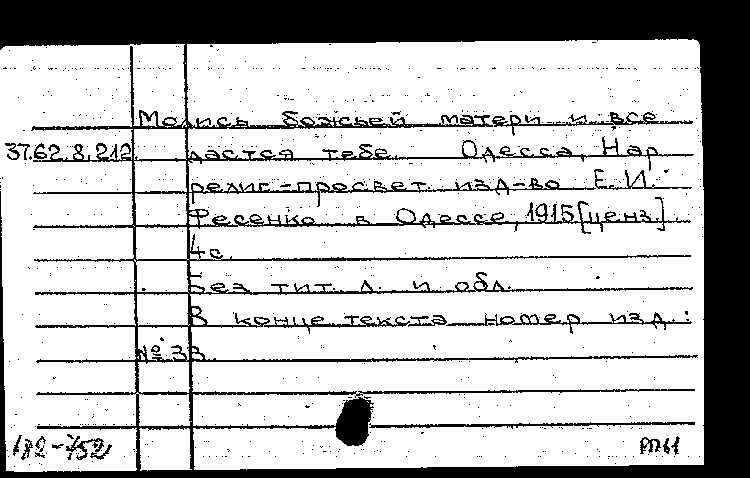 Молись божьей матери и все
37.62.8.212. дастся тебе. Одесса, Нар.
религ-просвет. изд-во Е.И.
Фесенко в Одессе, 1915 [ценз.].
4с.
Без тит. л. и обл.
В конце текста номер изд.:
№ 33.
182-752